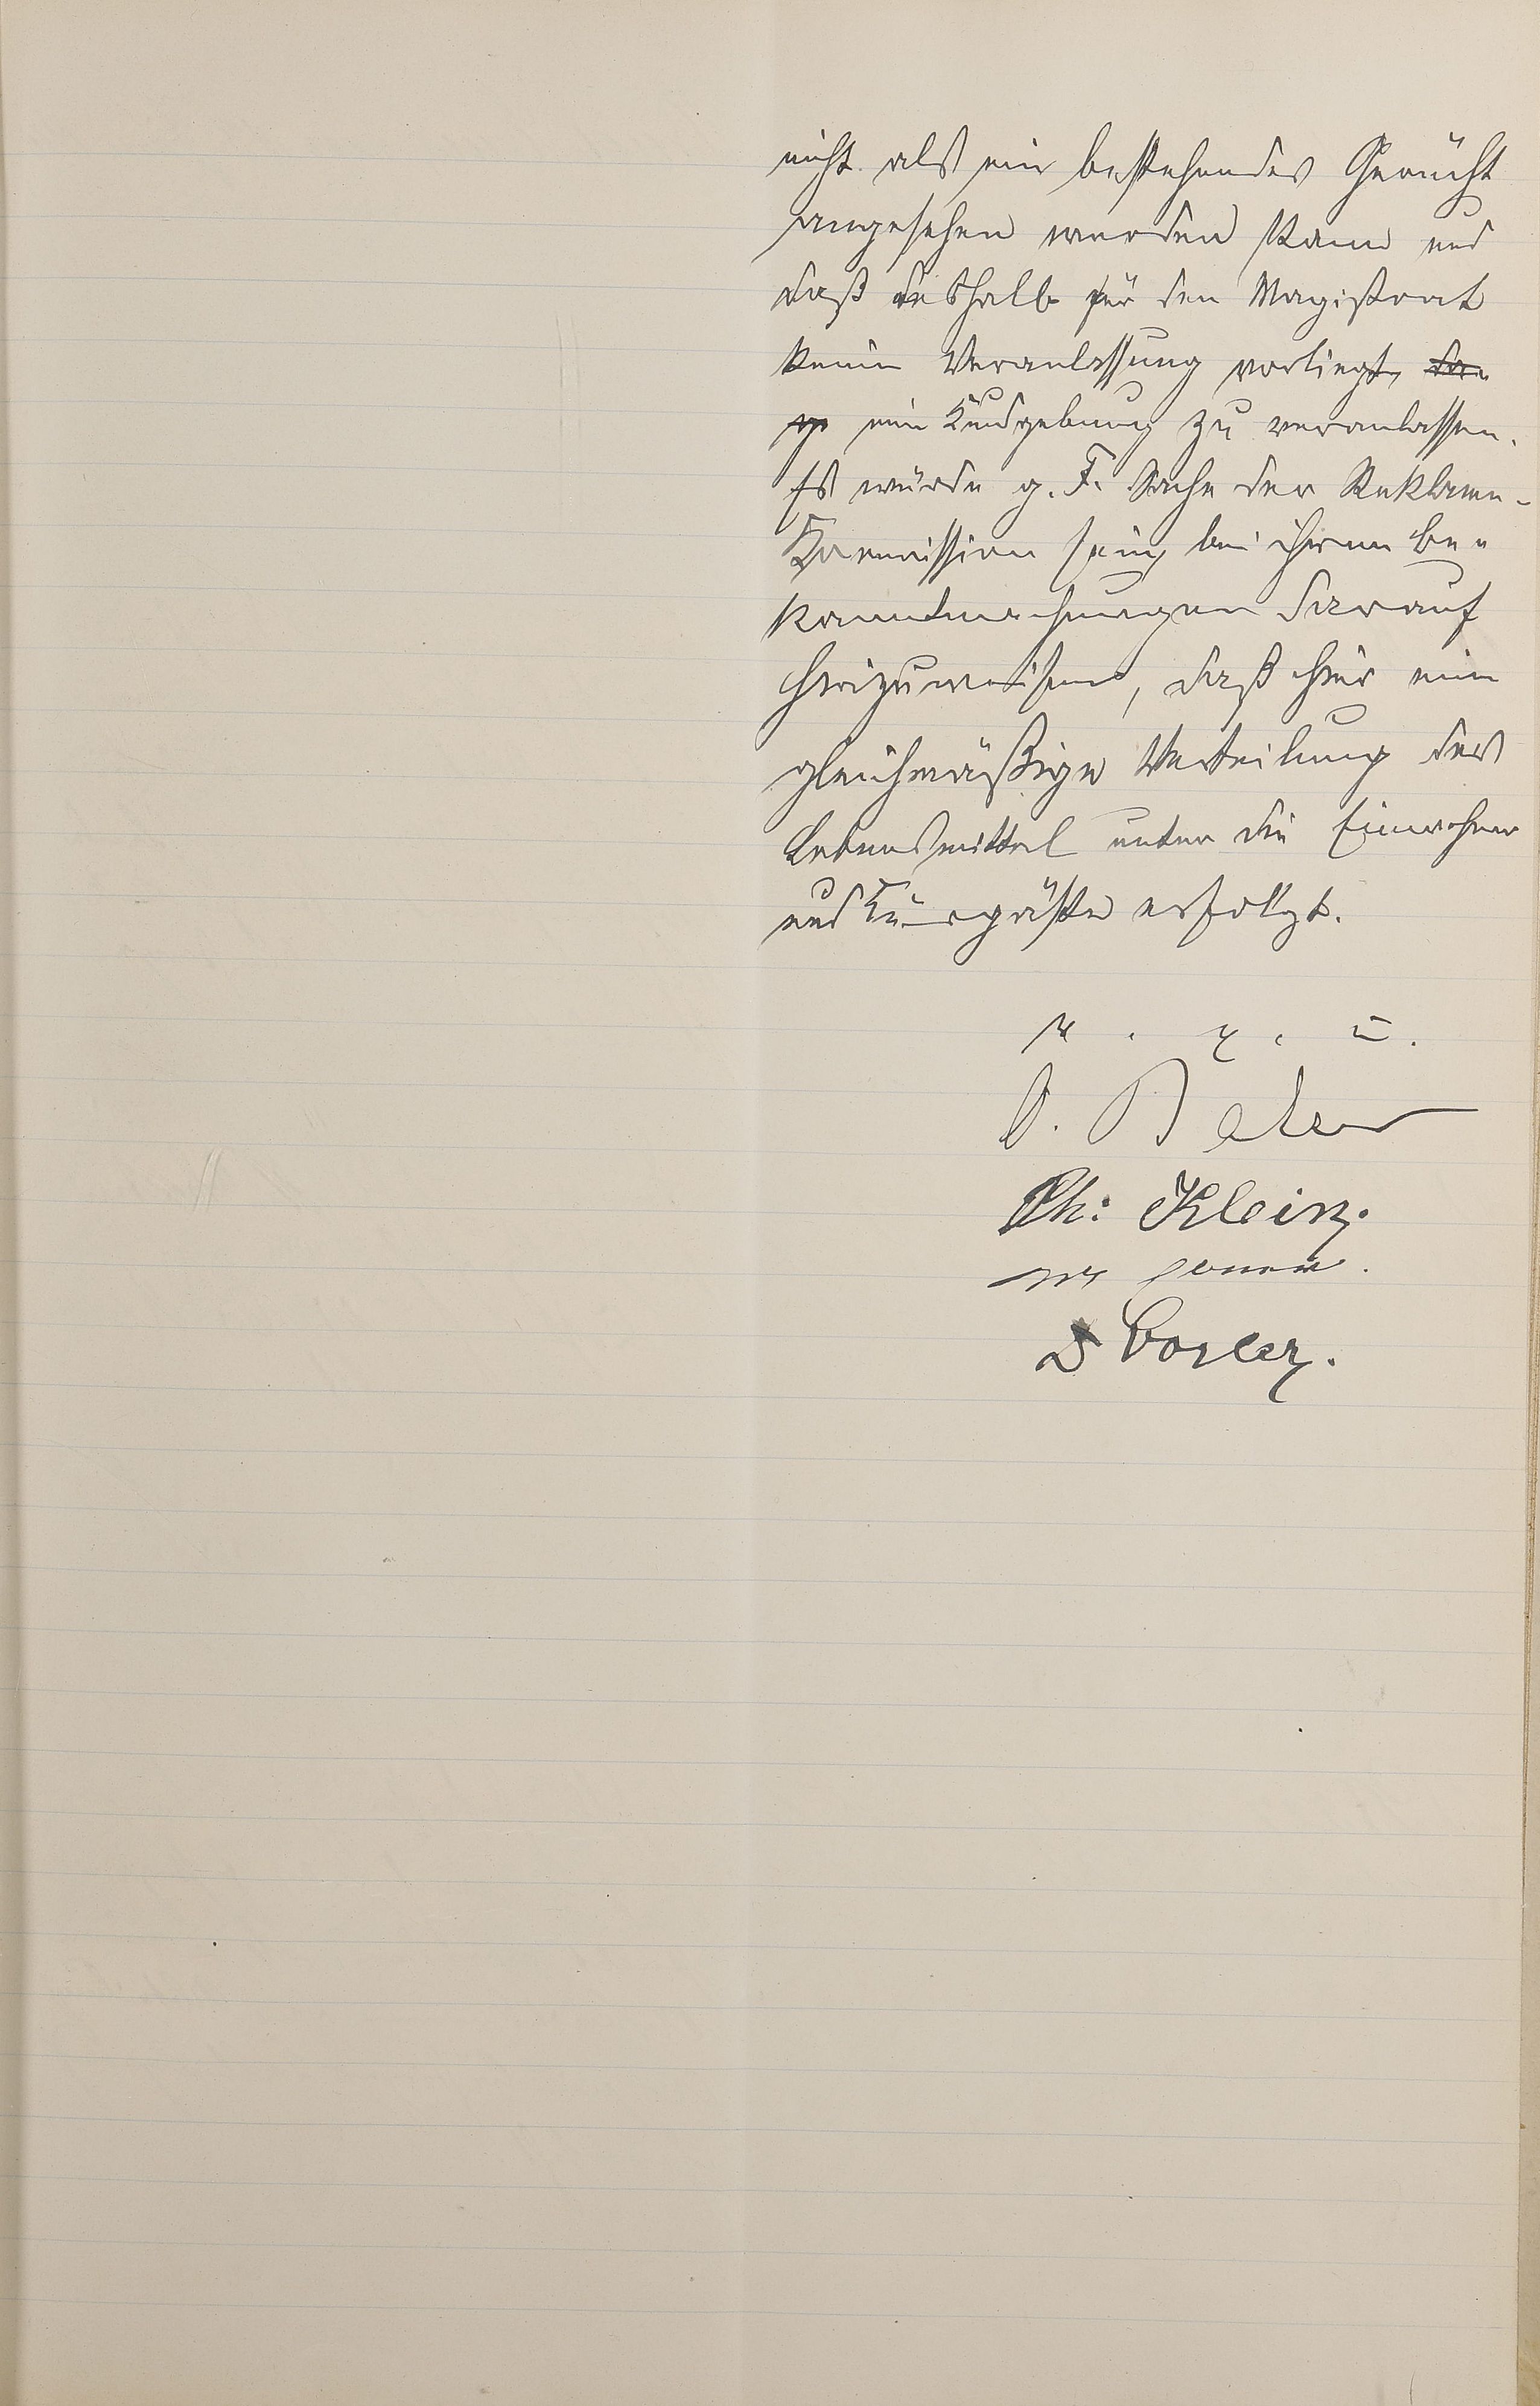 nicht als ein bestehendes Gerücht
angesehen werden kann und
daß deshalb für den Magistrat
keine Veranlassung vorliegt, da-
ge eine Kundgebung zu veranlassen.
Es würde g. F. Sache der Reklame-
Kommission sein, bei ihren Be-
kanntmachungen darauf
hinzuweisen, daß hier eine
gleichmäßige Verteilung der
Lebensmittel unter die Einwohner
und Kurgäste erfolgt.
v. g. u.
Ph: Klein.